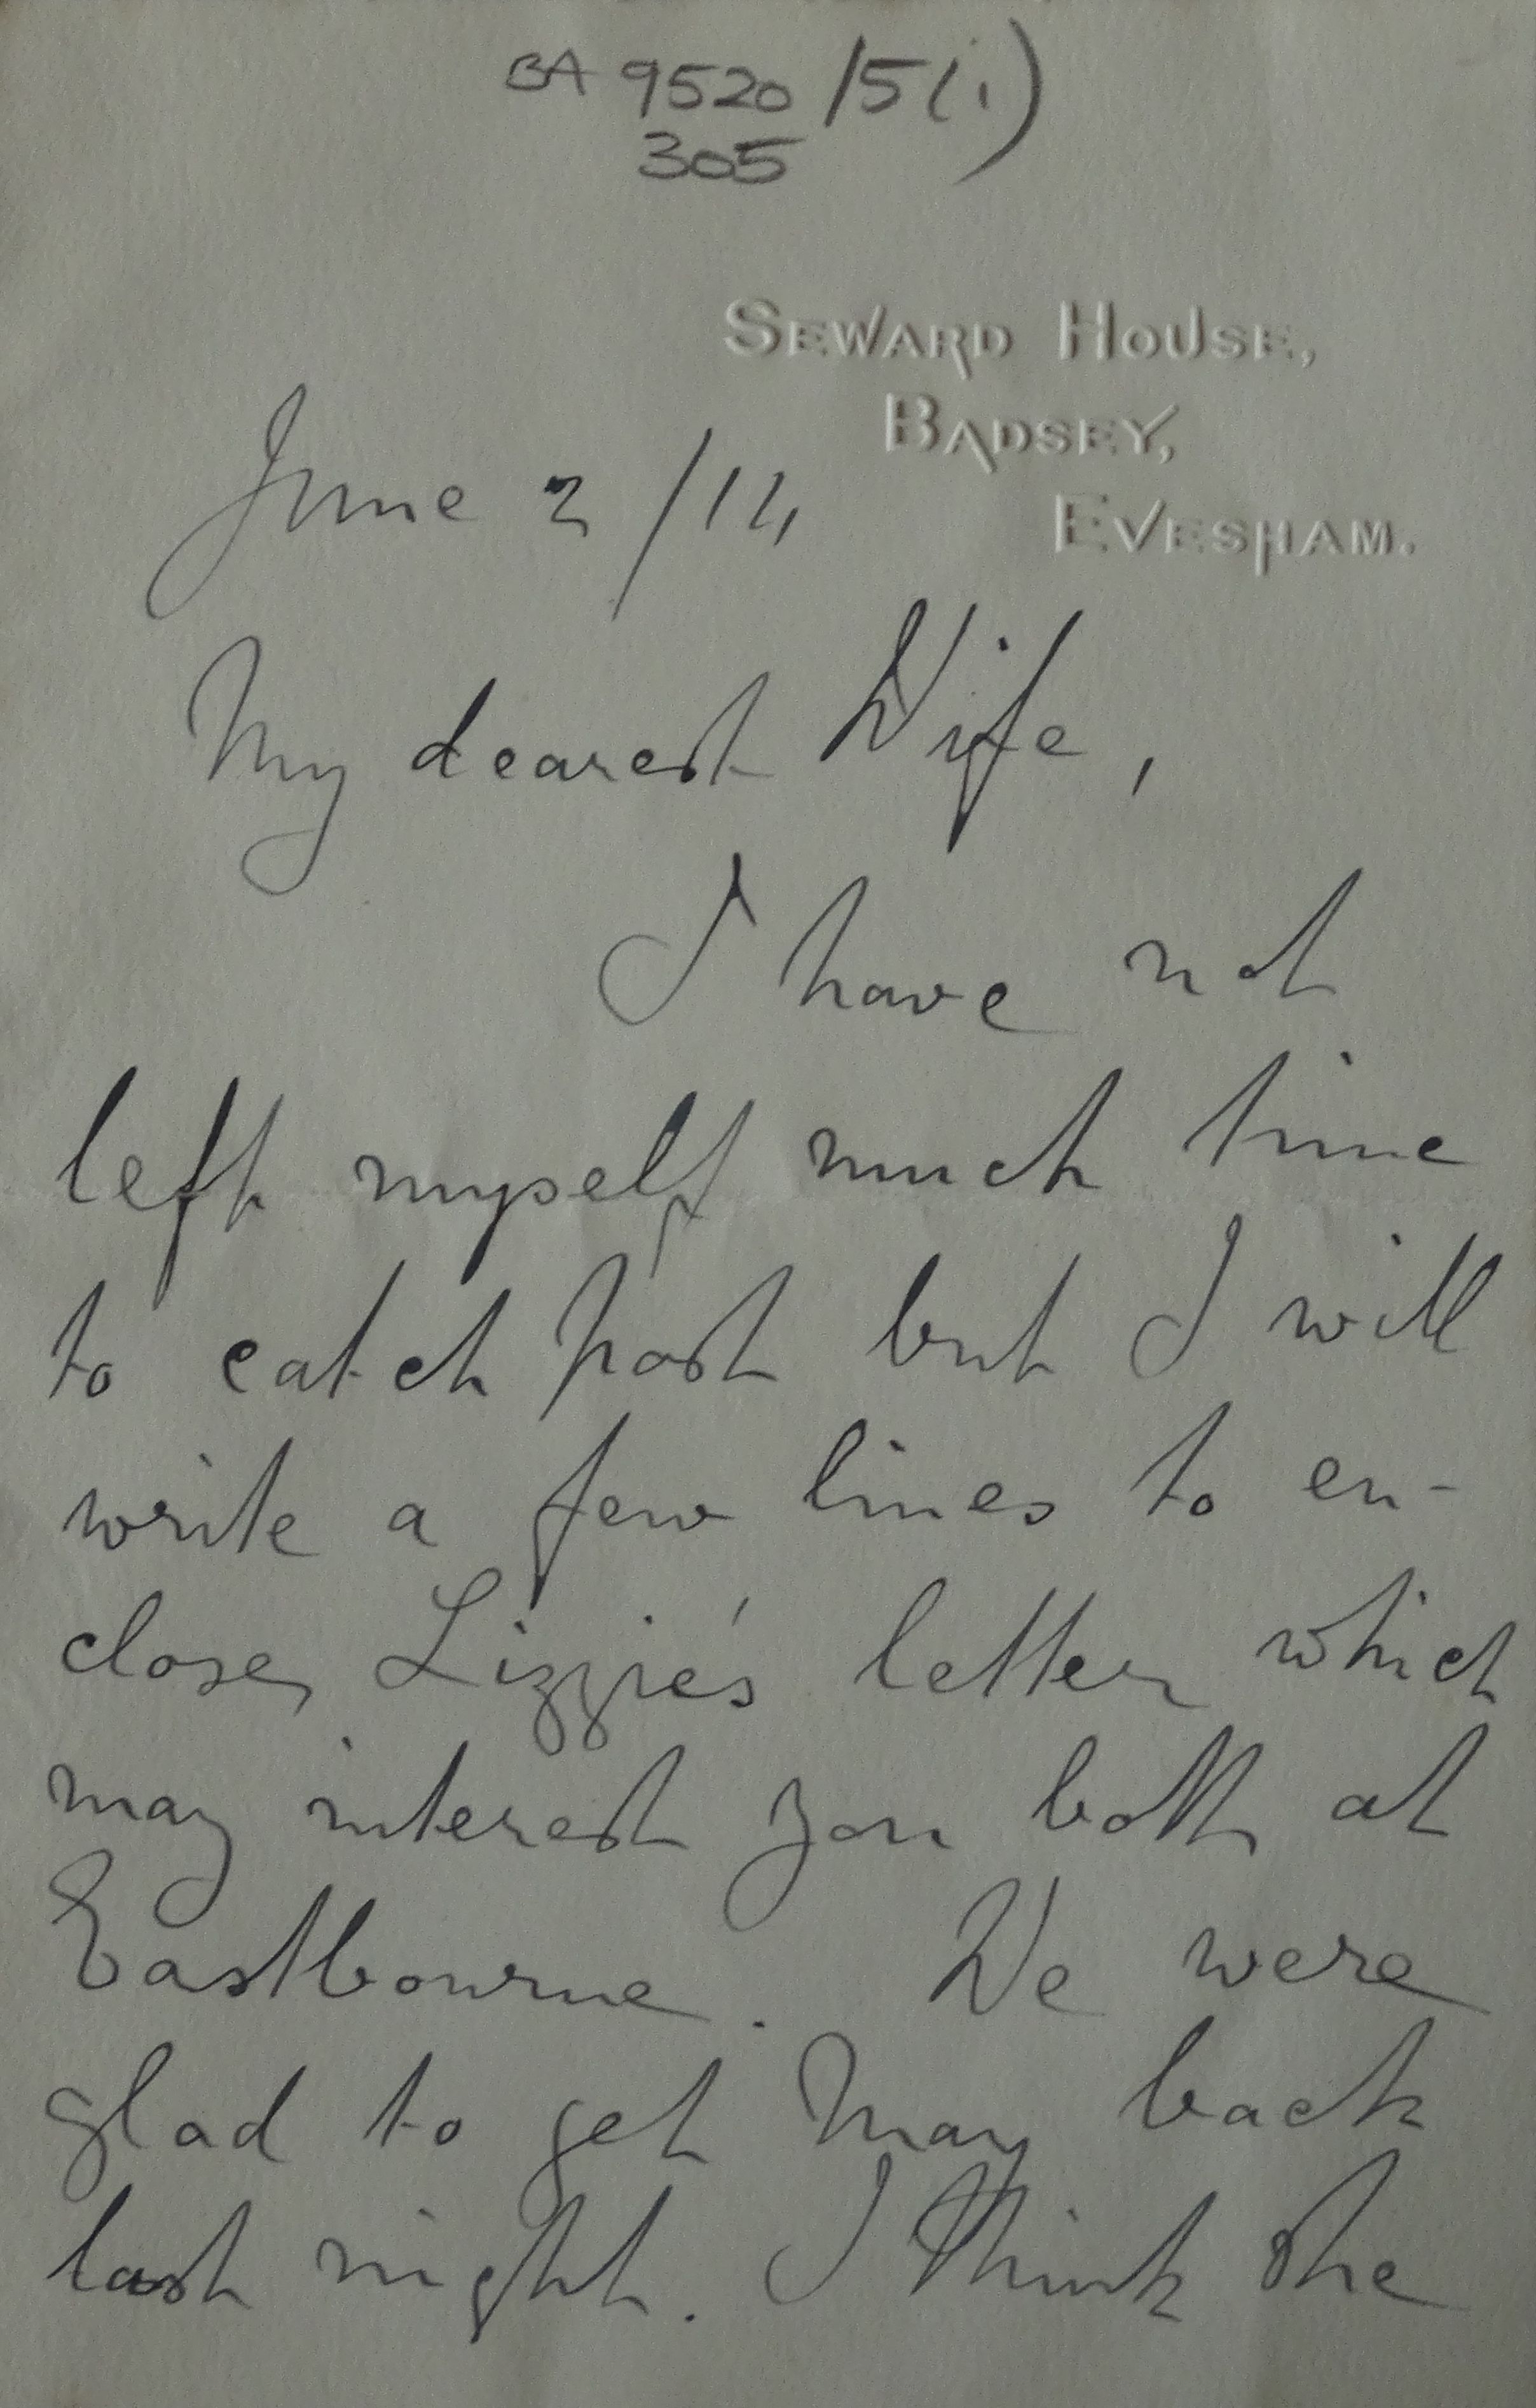 BA 9520/5(i)
305
SEWARD HOUSE,
BADSEY,
EVESHAM.
June 2/14
My dearest Wife,
I have not
left myself much time
to catch post but I will
write a few lines to en-
close, Lizzie's letter which
may interest you both at
Eastbourne. We were
glad to get May back
last night. I think she